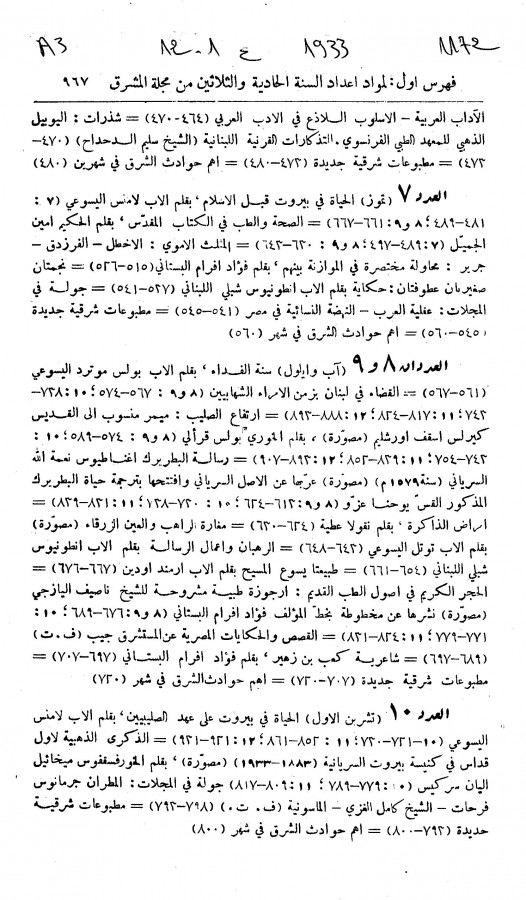 A3 12-1 ع 1933 1172
فهرس اول: لمواد اعداد السنة الحادية والثلاثين من مجلة المشرق ٩٦٧
الآداب العربية – الاسلوب اللاذع في الادب العربي (٤٦٤–٤٧٠) = شذرات: اليوبيل
الذهبي للمعهد الطبي الفرنسوي. التذكارات القرنية اللبنانية (الشيخ سليم الدحداح) (٤٧٠–
٤٧٣) = مطبوعات شرقية جديدة (٤٧٣–٤٨٠) = اهم حوادث الشرق في شهرين (٤٨٠)
العدد ٧ (تموز) الحياة في بيروت قبل الاسلام، بقلم الاب لامنس اليسوعي (٧:
٤٨١–٤٨٩؛ ٨ و ٩: ٦٦١–٦٦٧) = الصحة والطب في الكتاب المقدّس، بقلم الحكيم امين
الجميّل (٧: ٤٨٩–٤٩٧؛ ٨ و ٩: ٦٣٠–٦٤٣) = المثلث الاموي: الاخطل – الفرزدق –
جرير: محاولة مختصرة في الموازنة بينهم، بقلم فؤاد افرام البستاني (٥١٥–٥٢٦) = نجمتان
صغيرتان عطوفتان: حكاية بقلم الاب انطونيوس شبلي اللبناني (٥٢٧–٥٤١) = جولة في
المجلات: عقلية العرب – النهضة النسائية في مصر (٥٤١–٥٤٥) = مطبوعات شرقية جديدة
(٥٤٥–٥٦٠) = اهم حوادث الشرق في شهر (٥٦٠)
العددان ٨ و ٩ (آب وايلول) سنة الفداء، بقلم الاب بولس موترد اليسوعي
(٥٦١–٥٦٧) = القضاء في لبنان بزمن الامراء الشهابيين (٨ و ٩: ٥٦٧–٥٧٤؛ ١٠: ٧٣٨–
٧٤٢؛ ١١: ٨١٧–٨٢٤؛ ١٢: ٨٨٨–٨٩٣) = ارتفاع الصليب: ميمر منسوب الى القديس
كيرلس اسقف اورشليم (مصوّرة)، بقلم الخوري بولس قرألي (٨ و ٩: ٥٧٤–٥٨٩؛ ١٠:
٧٤٢–٧٥٤؛ ١١: ٨٣٩–٨٥٢؛ ١٢: ٨٩٣–٩٠٧) = رسالة البطريرك اغناطيوس نعمة الله
السرياني (سنة ١٥٧٩م) (مصوّرة) عرّبها عن الاصل السرياني وافتتحها بترجمة حياة البطريرك
المذكور القسّ يوحنا عزّو (٨ و ٩: ٦١٣–٦٢٤؛ ١٠: ٧٣٠–٧٣٨؛ ١١: ٨٣١–٨٣٩) =
امراض الذاكرة، بقلم نقولا عطية (٦٢٤–٦٣٠) = مغارة الراهب والعين الزرقاء (مصوّرة)
بقلم الاب توتل اليسوعي (٦٤٣–٦٤٨) = الرهبان واعمال الرسالة بقلم الاب انطونيوس
شبلي اللبناني (٦٥٤–٦٦١) = طبيعتا يسوع المسيح بقلم الاب ارمند اودين (٦٦٧–٦٧٦) =
الحجر الكريم في اصول الطب القديم: ارجوزة طبية مشروحة للشيخ ناصيف اليازجي
(مصوّرة) نشرها عن مخطوطة بخطّ المؤلف فؤاد افرام البستاني (٨ و ٩: ٦٧٦–٦٨٩؛ ١٠:
٧٧١–٧٧٩؛ ١١: ٨٢٤–٨٣١) = القصص والحكايات المصرية عن المستشرق جيب (ف. ت)
(٦٨٩–٦٩٧) = شاعرية كعب بن زهير، بقلم فؤاد افرام البستاني (٦٩٧–٧٠٧) =
مطبوعات شرقية جديدة (٧٠٧–٧٢٠) = اهم حوادث الشرق في شهر (٧٢٠)
العدد ١٠ (تشرين الاول) الحياة في بيروت على عهد الصليبيين، بقلم الاب لامنس
اليسوعي (١٠–٧٢١–٧٣٠؛ ١١: ٨٥٢–٨٦١؛ ١٢: ٩٢١–٩٣١) = الذكرى الذهبية لاول
قداس في كنيسة بيروت السريانية (١٨٨٣–١٩٣٣) (مصوّرة)، بقلم الخورفسقفوس ميخائيل
اليان سركيس (١٠: ٧٧٩–٧٨٩؛ ١١: ٨٠٩–٨١٧) جولة في المجلات: المطران جرمانوس
فرحات – الشيخ كامل الغزي – الماسونية (ف. ت.) (٧٨٩–٧٩٣) = مطبوعات شرقية
جديدة (٧٩٣–٨٠٠) = اهم حوادث الشرق في شهر (٨٠٠)